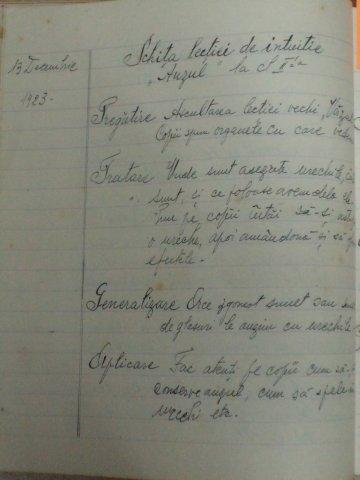 13 Decembrie
1923.
Schița lecției de intuiție
"Auzul" la cl. II-a
Pregătire Ascultarea lecției vechi
Copiii spun organele cu care
Tratare Unde sunt așezate urechile,
sunt, și ce foloase avem dela ele
pe copiii întâi să-și
o ureche, apoi amândouă și să
efectele.
Generalizare Orce zgomot sunet sau
de glasuri le auzim cu urechile
Aplicare Fac atenți pe copii cum să-
conserve auzul, cum să spele
urechi etc.